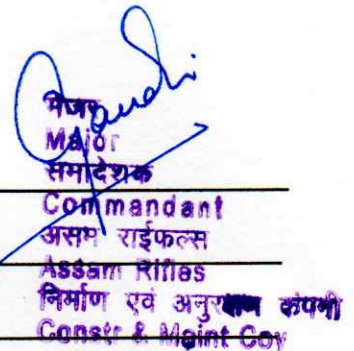 मेजर
Major
समादेशक
Commandant
असम राईफल्स
Assam Rifles
निर्माण एवं अनुरक्षण कंपनी
Constr & Maint Coy